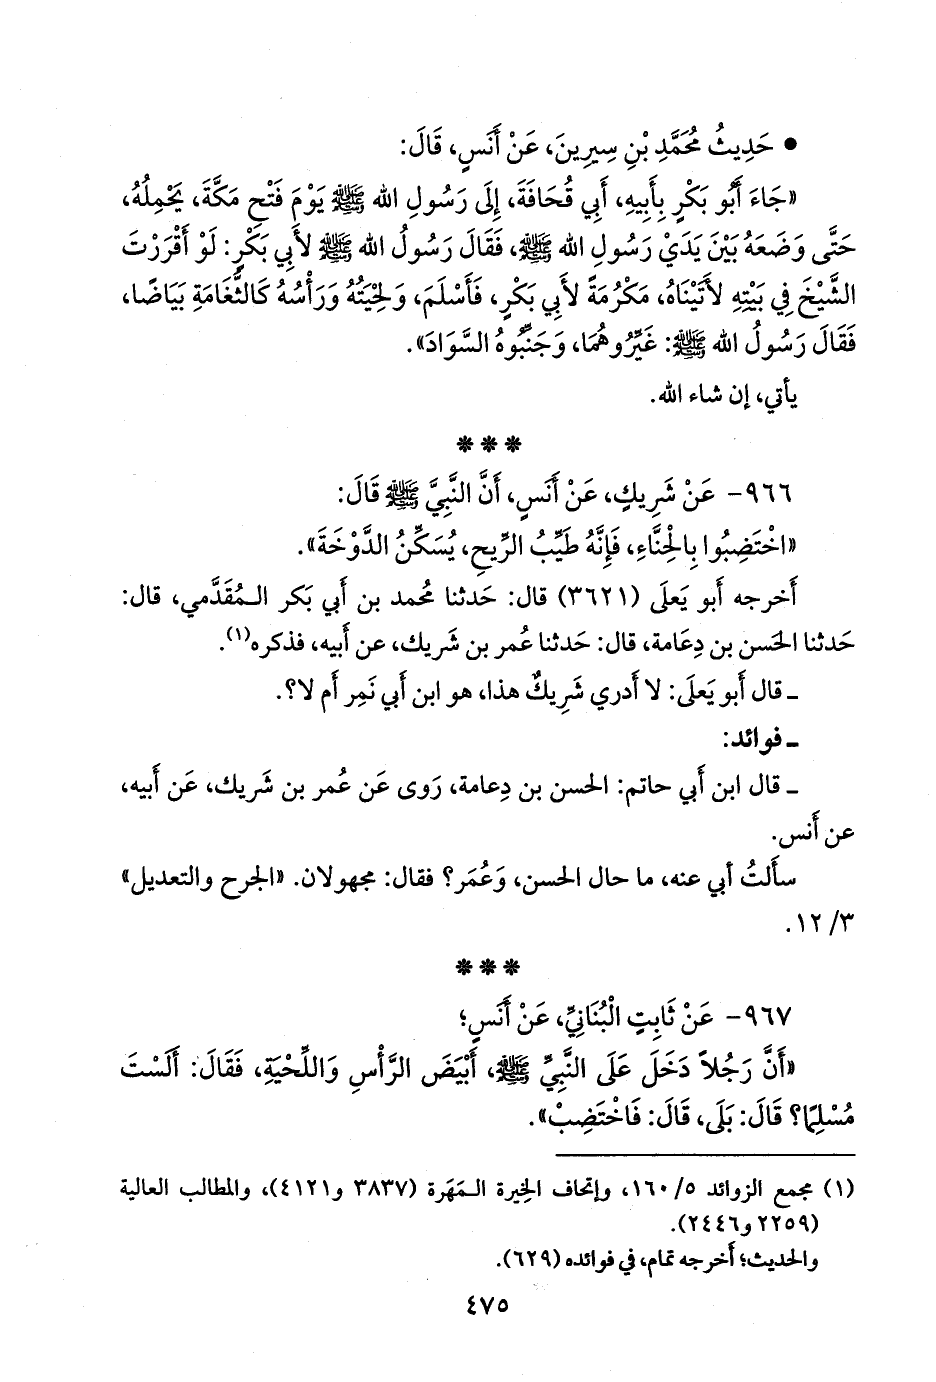 • حَدِيثُ مُحَمَّدِ بْنِ سِيرِينَ، عَنْ أَنَسٍ، قَالَ:
«جَاءَ أَبُو بَكْرٍ بِأَبِيهِ، أَبِي قُحَافَةَ، إِلَى رَسُولِ الله ﷺ يَوْمَ فَتْحِ مَكَّةَ، يَحْمِلُهُ،
حَتَّى وَضَعَهُ بَيْنَ يَدَيْ رَسُولِ الله ﷺ، فَقَالَ رَسُولُ الله ﷺ لأَبِي بَكْرٍ: لَوْ أَقْرَرْتَ
الشَّيْخَ فِي بَيْتِهِ لأَتَيْنَاهُ، مَكْرُمَةً لأَبِي بَكْرٍ، فَأَسْلَمَ، وَلِحْيَتُهُ وَرَأْسُهُ كَالثَّغَامَةِ بَيَاضًا،
فَقَالَ رَسُولُ الله ﷺ: غَيِّرُوهُمَا، وَجَنِّبُوهُ السَّوَادَ».
يأتي، إن شاء الله.
***
٩٦٦- عَنْ شَرِيكٍ، عَنْ أَنَسٍ، أَنَّ النَّبِيَّ ﷺ قَالَ:
«اخْتَضِبُوا بِالْحِنَّاءِ، فَإِنَّهُ طَيِّبُ الرِّيحِ، يُسَكِّنُ الدَّوْخَةَ».
أَخرجه أَبو يَعلَى (٣٦٢١) قال: حَدثنا مُحمد بن أَبي بَكر الـمُقَدَّمي، قال:
حَدثنا الحَسن بن دِعَامة، قال: حَدثنا عُمر بن شَريك، عن أَبيه، فذكره(١).
ـ قال أَبو يَعلَى: لا أَدري شَرِيكٌ هذا، هو ابن أَبي نَمِر أَم لا؟.
ـ فوائد:
ـ قال ابن أَبي حاتم: الحسن بن دِعامة، رَوى عَن عُمر بن شَريك، عَن أَبيه،
عن أَنس.
سأَلتُ أَبي عنه، ما حال الحسن، وَعُمَر؟ فقال: مجهولان. «الجرح والتعديل»
٣/ ١٢.
***
٩٦٧- عَنْ ثَابِتٍ الْبُنَانِيِّ، عَنْ أَنَسٍ؛
«أَنَّ رَجُلاً دَخَلَ عَلَى النَّبِيِّ ﷺ، أَبْيَضَ الرَّأْسِ وَاللِّحْيَةِ، فَقَالَ: أَلَسْتَ
مُسْلِمًا؟ قَالَ: بَلَى، قَالَ: فَاخْتَضِبْ».
(١) مجمع الزوائد ٥/ ١٦٠، وإتحاف الخِيرة الـمَهَرة (٣٨٣٧ و٤١٢١)، والمطالب العالية
(٢٢٥٩ و٢٤٤٦).
والحديث؛ أَخرجه تمام، في فوائده (٦٢٩).
٤٧٥